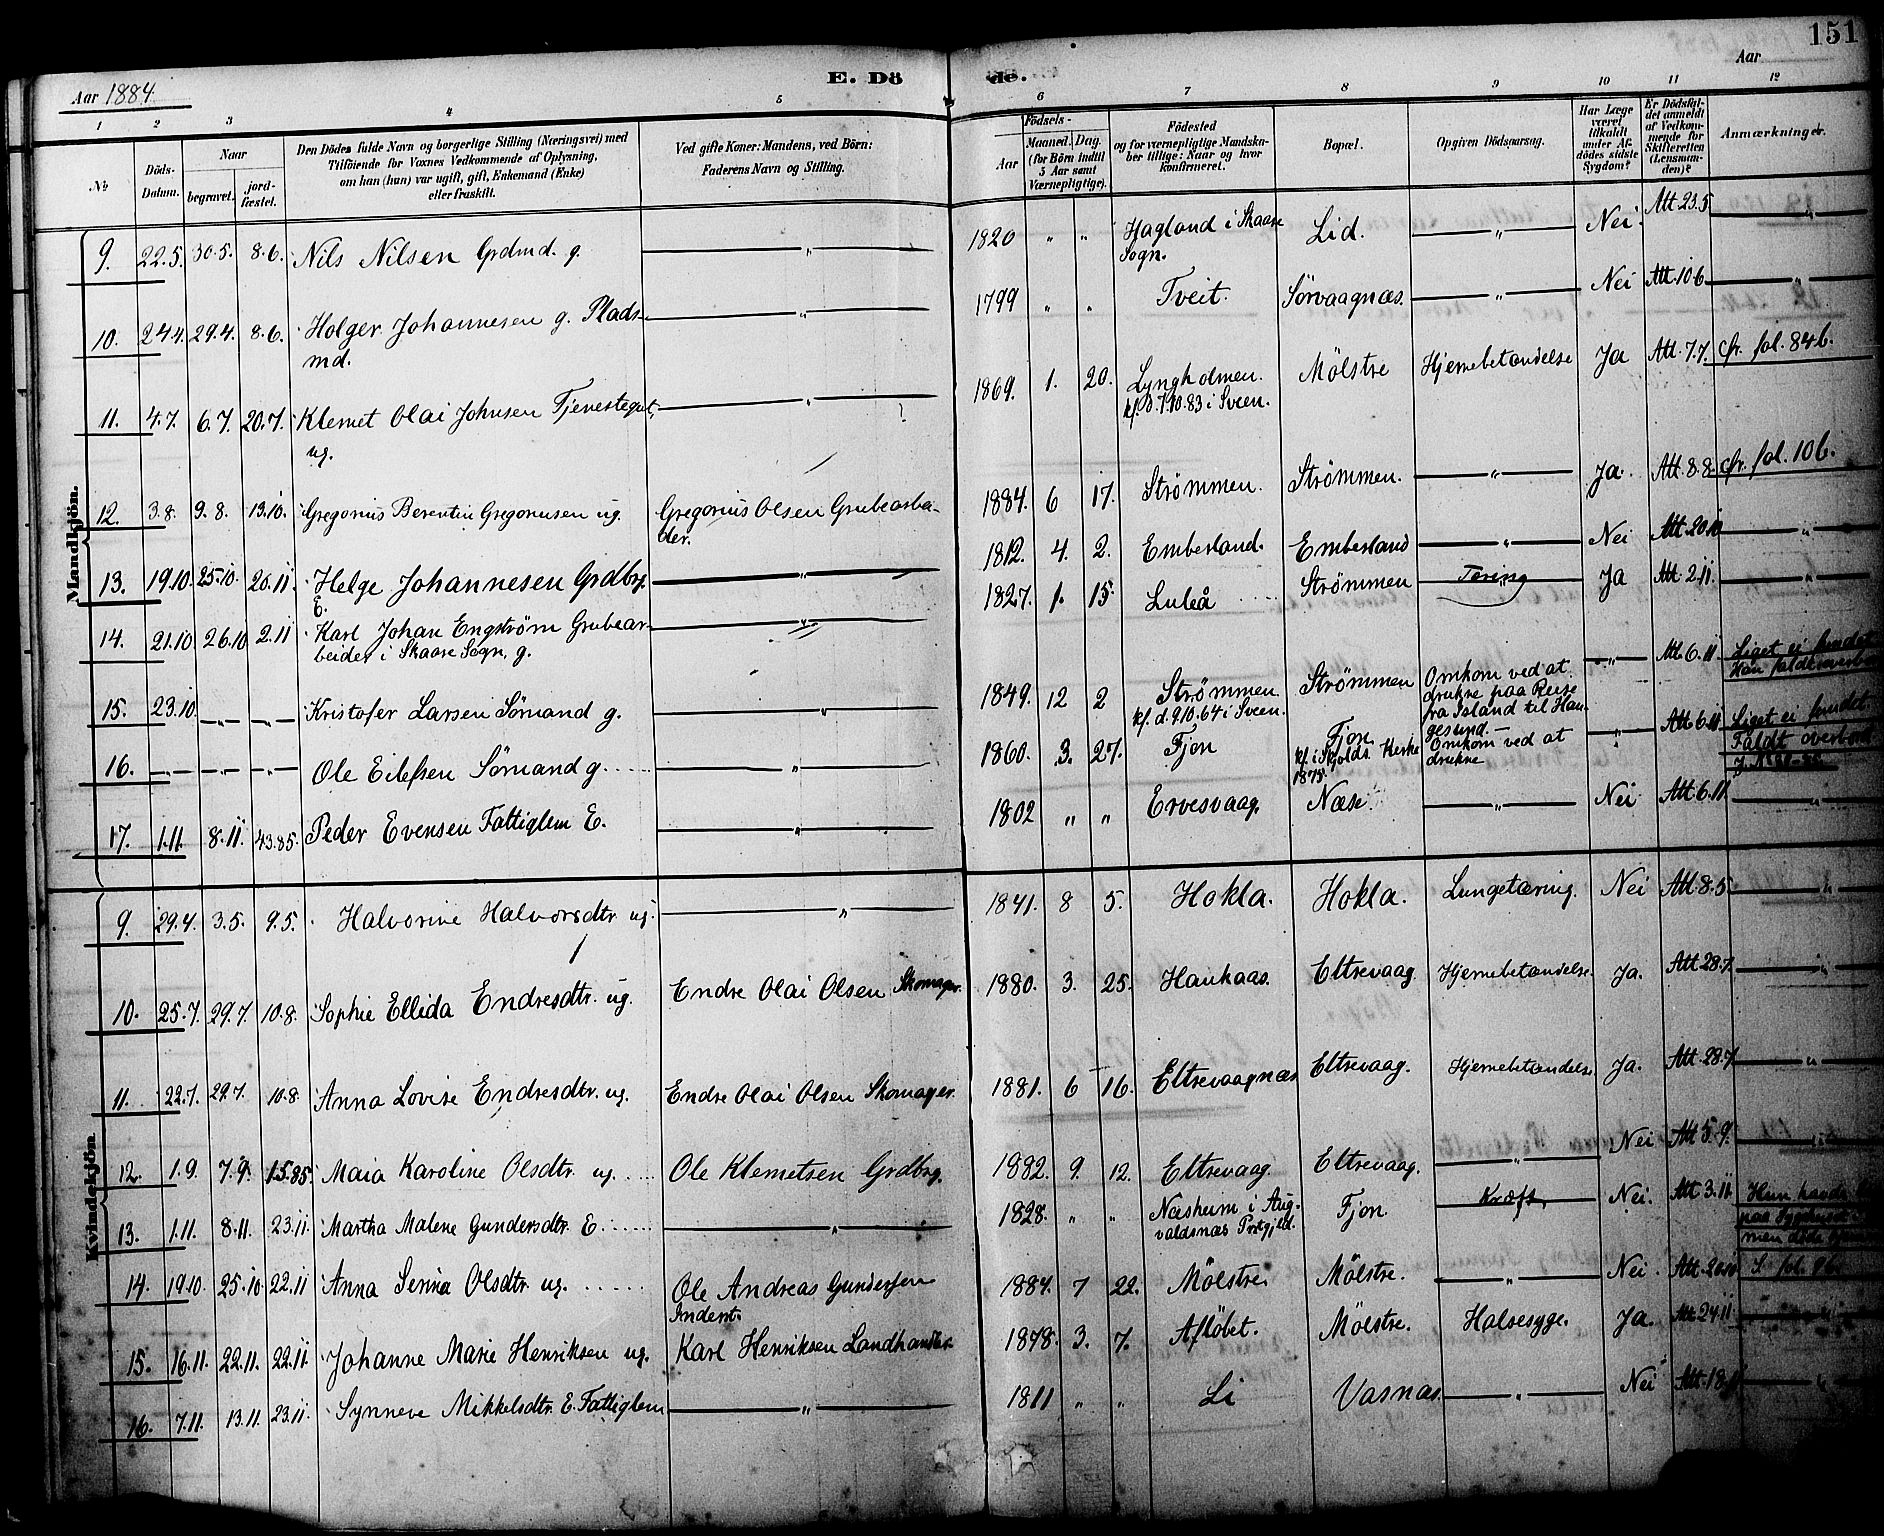 151
Aar 1884. E. Dö de. Aar
1 2 3 4 5 6 7 8 9 10 11 12
№
Döds-Datum.
Naar
begravet. jord-fæstet.
Den Dödes fulde Navn og borgerlige Stilling (Næringsvei) med
Tilföiende for Voxnes Vedkommende af Oplysning,
om han (hun) var ugift, gift, Enkemand (Enke)
eller fraskilt.
Ved gifte Koner: Mandens, ved Börn:
Faderens Navn og Stilling.
Födsels-
Aar Maaned. Dag.
(for Börn indtil
5 Aar samt
Værnepligtige).
Födested
og for værnepligtige Mandskaber tillige: Naar og hvor
konfirmeret.
Bopæl.
Opgiven Dödsaarsag.
Har Læge
været
tilkaldt
under Afdödes sidste
Sygdom?
Er Dödsfaldet anmeldt
af Vedkommende for
Skifteretten
(Lensmanden)?
Anmærkninger.
Mandkjön.
9. 22.5. 30.5. 8.6. Nils Nilsen Grdmd. g. — " — 1820 " " Hagland i Skaare Sogn. Lid. — " — Nei. Att 23.5 — " —
10. 24.4. 29.4. 8.6. Holger Johannesen g. Plads-
md. — " — 1799 " " Tveit. Sørvaagnæs. — " — Nei Att. 10.6 — " —
11. 4.7. 6.7. 20.7. Klemet Olai Johnsen Tjenestegut,
ug. — " — 1869. 1. 20. Lyngholmen.
kf. d. 7.10.83 i Sveen. Mölstre Hjernebetændelse Ja Att. 7.7. cfr. fol. 84 b.
12. 3.8. 9.8. 13.10. Gregorius Berentin Gregoriusen ug. Gregorius Olsen Grubearbei-
der. 1884. 6 17. Strömmen. Strömmen. — " — Ja. Att 8.8. cfr. fol. 10 b.
13. 19.10. 25.10 20.11. Helge Johannesen Grdbrg.
E. — " — 1812. 4. 2. Emberland. Emberland — " — Nei Att. 20.10 — " —
14. 21.10 26.10 2.11 Karl Johan Engström Grubear-
beider i Skaare Sogn. g. — " — 1827. 1. 15. Luleå Strömmen Tæring Ja Att 2.11. — " —
15. 23.10. — " — — " — Kristofer Larsen Sömand g. — " — 1849. 12 2 Strömmen
kf. d. 9.10.64 i Sveen. Strömmen Omkom ved at
drukne paa Reise
fra Island til Hau-
gesund. — — " — Att. 6.11 Liget ei fundet
Han faldt overbord
16. — — " — — " — Ole Eilefsen Sömand g. — " — 1860. 3. 27. Fjon Fjon
kf. i Skjolds Kirke
1875. Omkom ved at
drukne — " — Att 6.11 Liget ei fundet
Faldt overbord
17. 1.11. 8.11. 4.3.85. Peder Evensen Fattiglem E. — " — 1802 " " Ervesvaag. Næse — " — Nei Att 6.11. — " —
Kvindekjön.
9. 29.4. 3.5. 9.5. Halvorine Halvorsdtr. ug. — " — 1841. 8 5. Hokla. Hokla. Lungetæring. Nei Att. 8.5. "
10. 25.7. 29.7. 10.8. Sophie Ellida Endresdtr. ug. Endre Olai Olsen Skomager. 1880. 3. 25. Haukaas. Eltrevaag Hjernebetændelse. Ja. Att 28.7. — " —
11. 22.7. 29.7. 10.8. Anna Lovise Endresdtr. ug. Endre Olai Olsen Skomager. 1881. 6 16. Eltrevaagnæs Eltrevaag. Hjernebetændelse Ja. Att 28.7. — " —
12. 1.9. 7.9. 1.5.85. Maia Karoline Olsdtr. ug. Ole Klemetsen Grdbrg. 1882. 9. 12. Eltrevaag. Eltrevaag. — " — Nei Att 5.9. — " —
13. 1.11. 8.11. 23.11. Martha Malene Gundersdtr. E. — " — 1828. " " Næshum i Aug-
valdsnæs Prstgjeld. Fjon. Kræft Nei. Att 3.11. Hun havde
paa Sygehuset
men döde
14. 19.10. 25.10. 22.11 Anna Serina Olsdtr. ug. Ole Andreas Gundersen
Inderst. 1884. 7 22. Mölstre. Mölstre. — " — Nei Att. 20.10 S. fol.
15. 16.11. 22.11. 22.11. Johanne Marie Henriksen ug. Karl Henriksen Landhandler. 1878. 3. 7. Aflöbet. Mölstre. Halsesyge. Ja. Att. 24.11. — " —
16. 7.11. 13.11. 23.11. Synneve Mikkelsdtr. E. Fattiglem — " — 1811 " " Li Vasnæs. — " — Nei Att. — " —